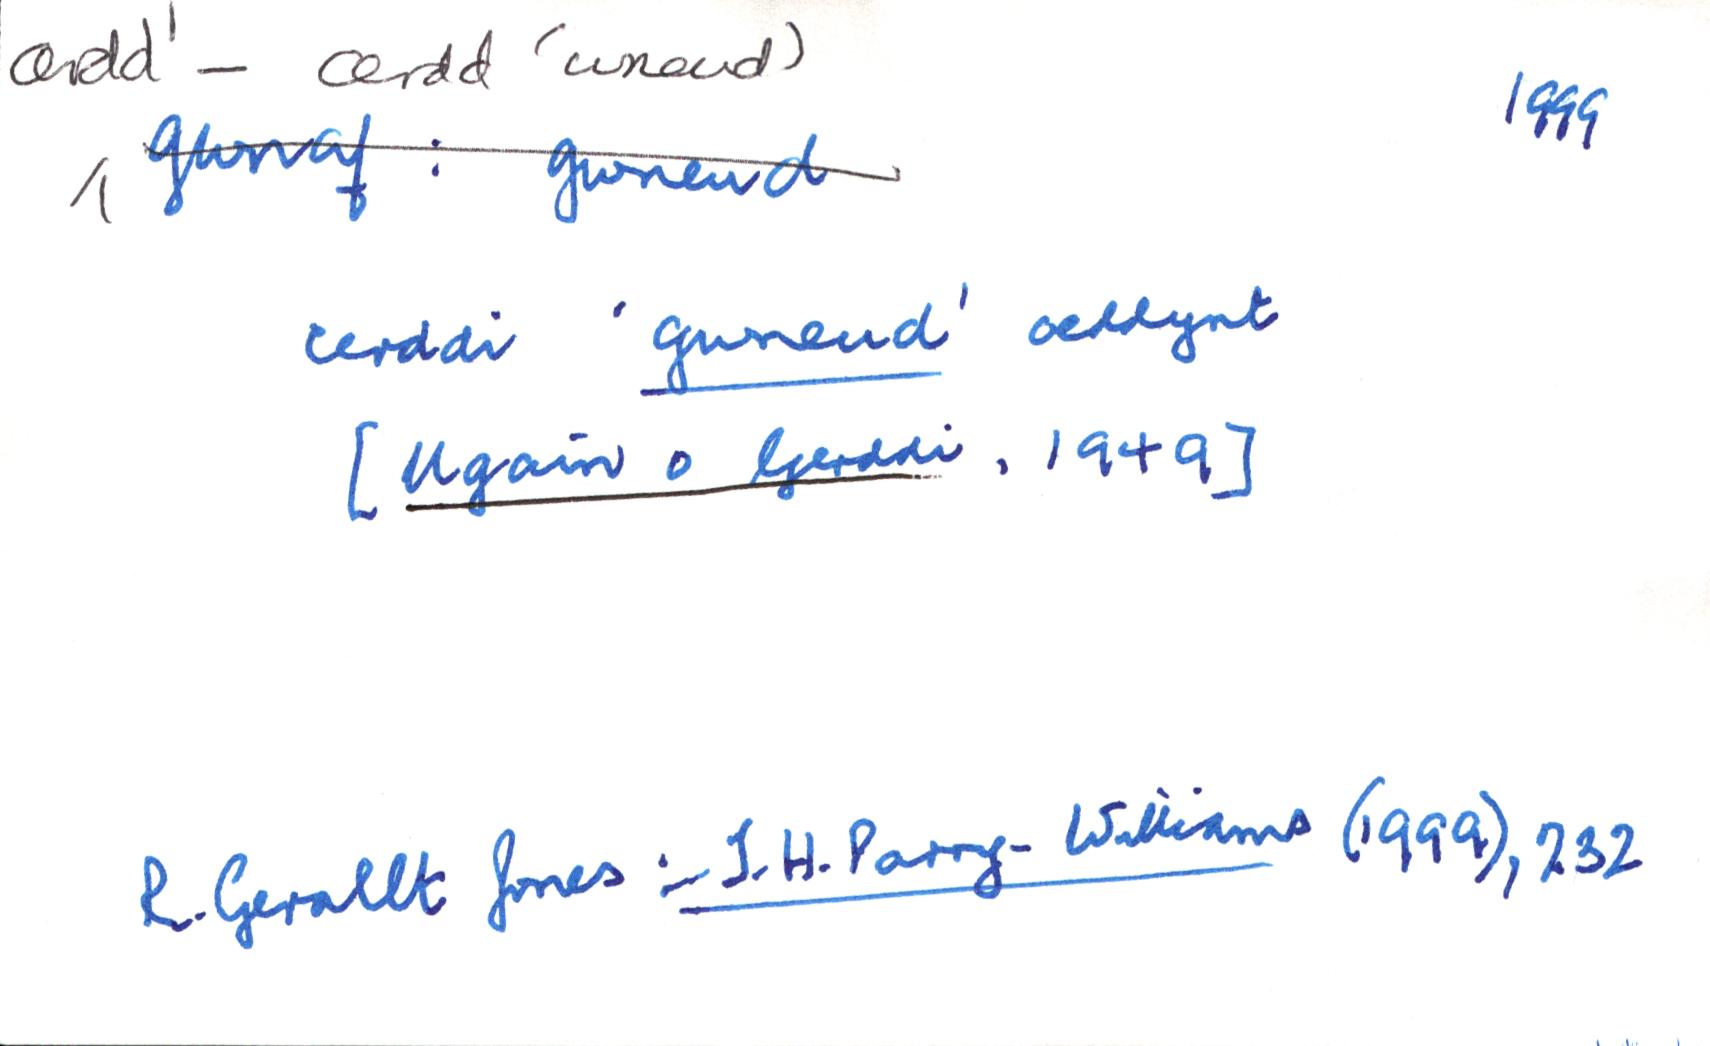 cerdd¹ – cerdd (wneud)
1999
gwnaf : gwneud
cerddi 'gwneud' oeddynt
[Ugain o Gerddi, 1949]
R. Gerallt Jones :– T.H. Parry-Williams (1999), 232